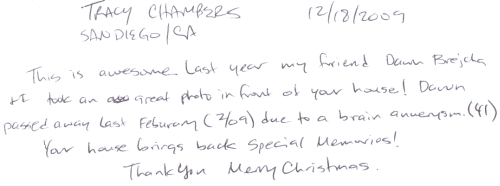 TRACY CHAMBERS 12/18/2009
SAN DIEGO/CA
This is awesome. Last year my friend Dawn Brejcha
+ I took an great photo in front of your house! Dawn
passed away last Feburary (2/09) due to a brain annuerysm. (41)
Your house brings back special Memories!
Thank You Merry Christmas.